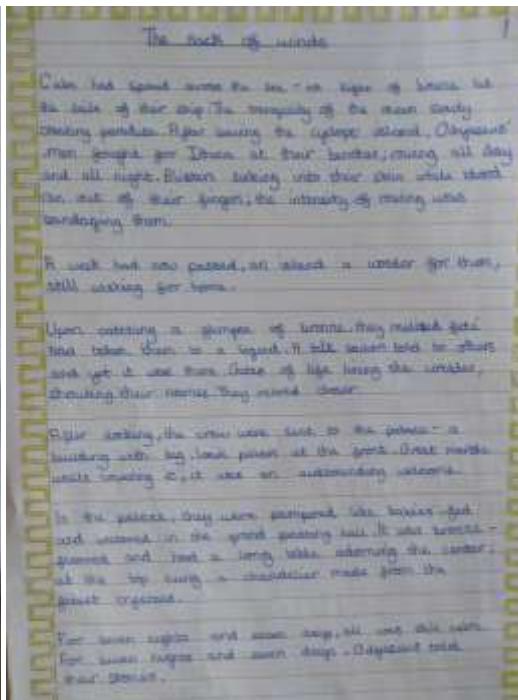 The sack of winds
1
Calm had spread across the sea - no signs of breeze hit
the sails of their ship. The tranquility of the ocean
creating paradise. After leaving the cyclops island, Odysseus'
men fought for Ithaca at their benches; rowing all day
and all night. Blisters into their skin while blood
ran out of their fingers, the intensity of rowing was
them.
A week had now passed, an island a wonder for them,
still wishing for home.
Upon catching a glimpse of bronze, they realised fate
had taken them to a legend. A tale sailors told to others
and yet it was there. of life the
shouting their They rowed closer
After docking, the crew were sent to the palace - a
building with big, at the front. Great marble
walls covering it, it was an welcome.
In the palace, they were pampered like babies - fed
and in the grand hall. It was bronze -
and had a long table adorning the center;
at the top hung a chandelier made from the
finest crystals.
For seven nights and seven days, all was
For seven nights and seven days, Odysseus told
their stories.